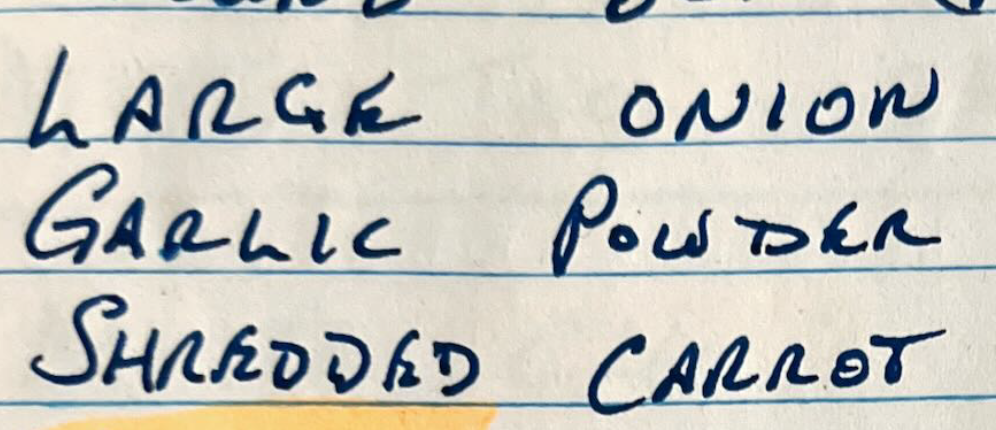 LARGE ONION
GARLIC POWDER
SHREDDED CARROT